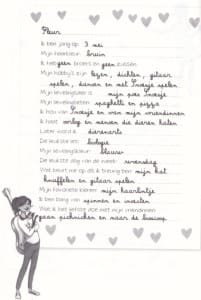 Fleur
Ik ben jarig op: 3 mei
Mijn haarkleur: bruin
Ik heb geen broers en geen zussen.
Mijn hobby's zijn: lezen, dichten, gitaar
spelen, dansen en met Inktje spelen
Mijn lievelingsdier is: mijn poes Inktje
Mijn lievelingseten: spaghetti en pizza
Ik hou van: Inktje en van mijn vriendinnen
Ik haat: oorlog en mensen die dieren haten
Later word ik: dierenarts
De leukste les: biologie
Mijn lievelingskleur: blauw
De leukste dag van de week: woensdag
Wat beurt me op als ik treurig ben: mijn kat
knuffelen en gitaar spelen
Mijn favoriete kleren: mijn haarlintje
Ik ben bang van: spinnen en
Wat ik het liefste doe met mijn vriendinnen:
gaan picknicken en naar de bioscoop